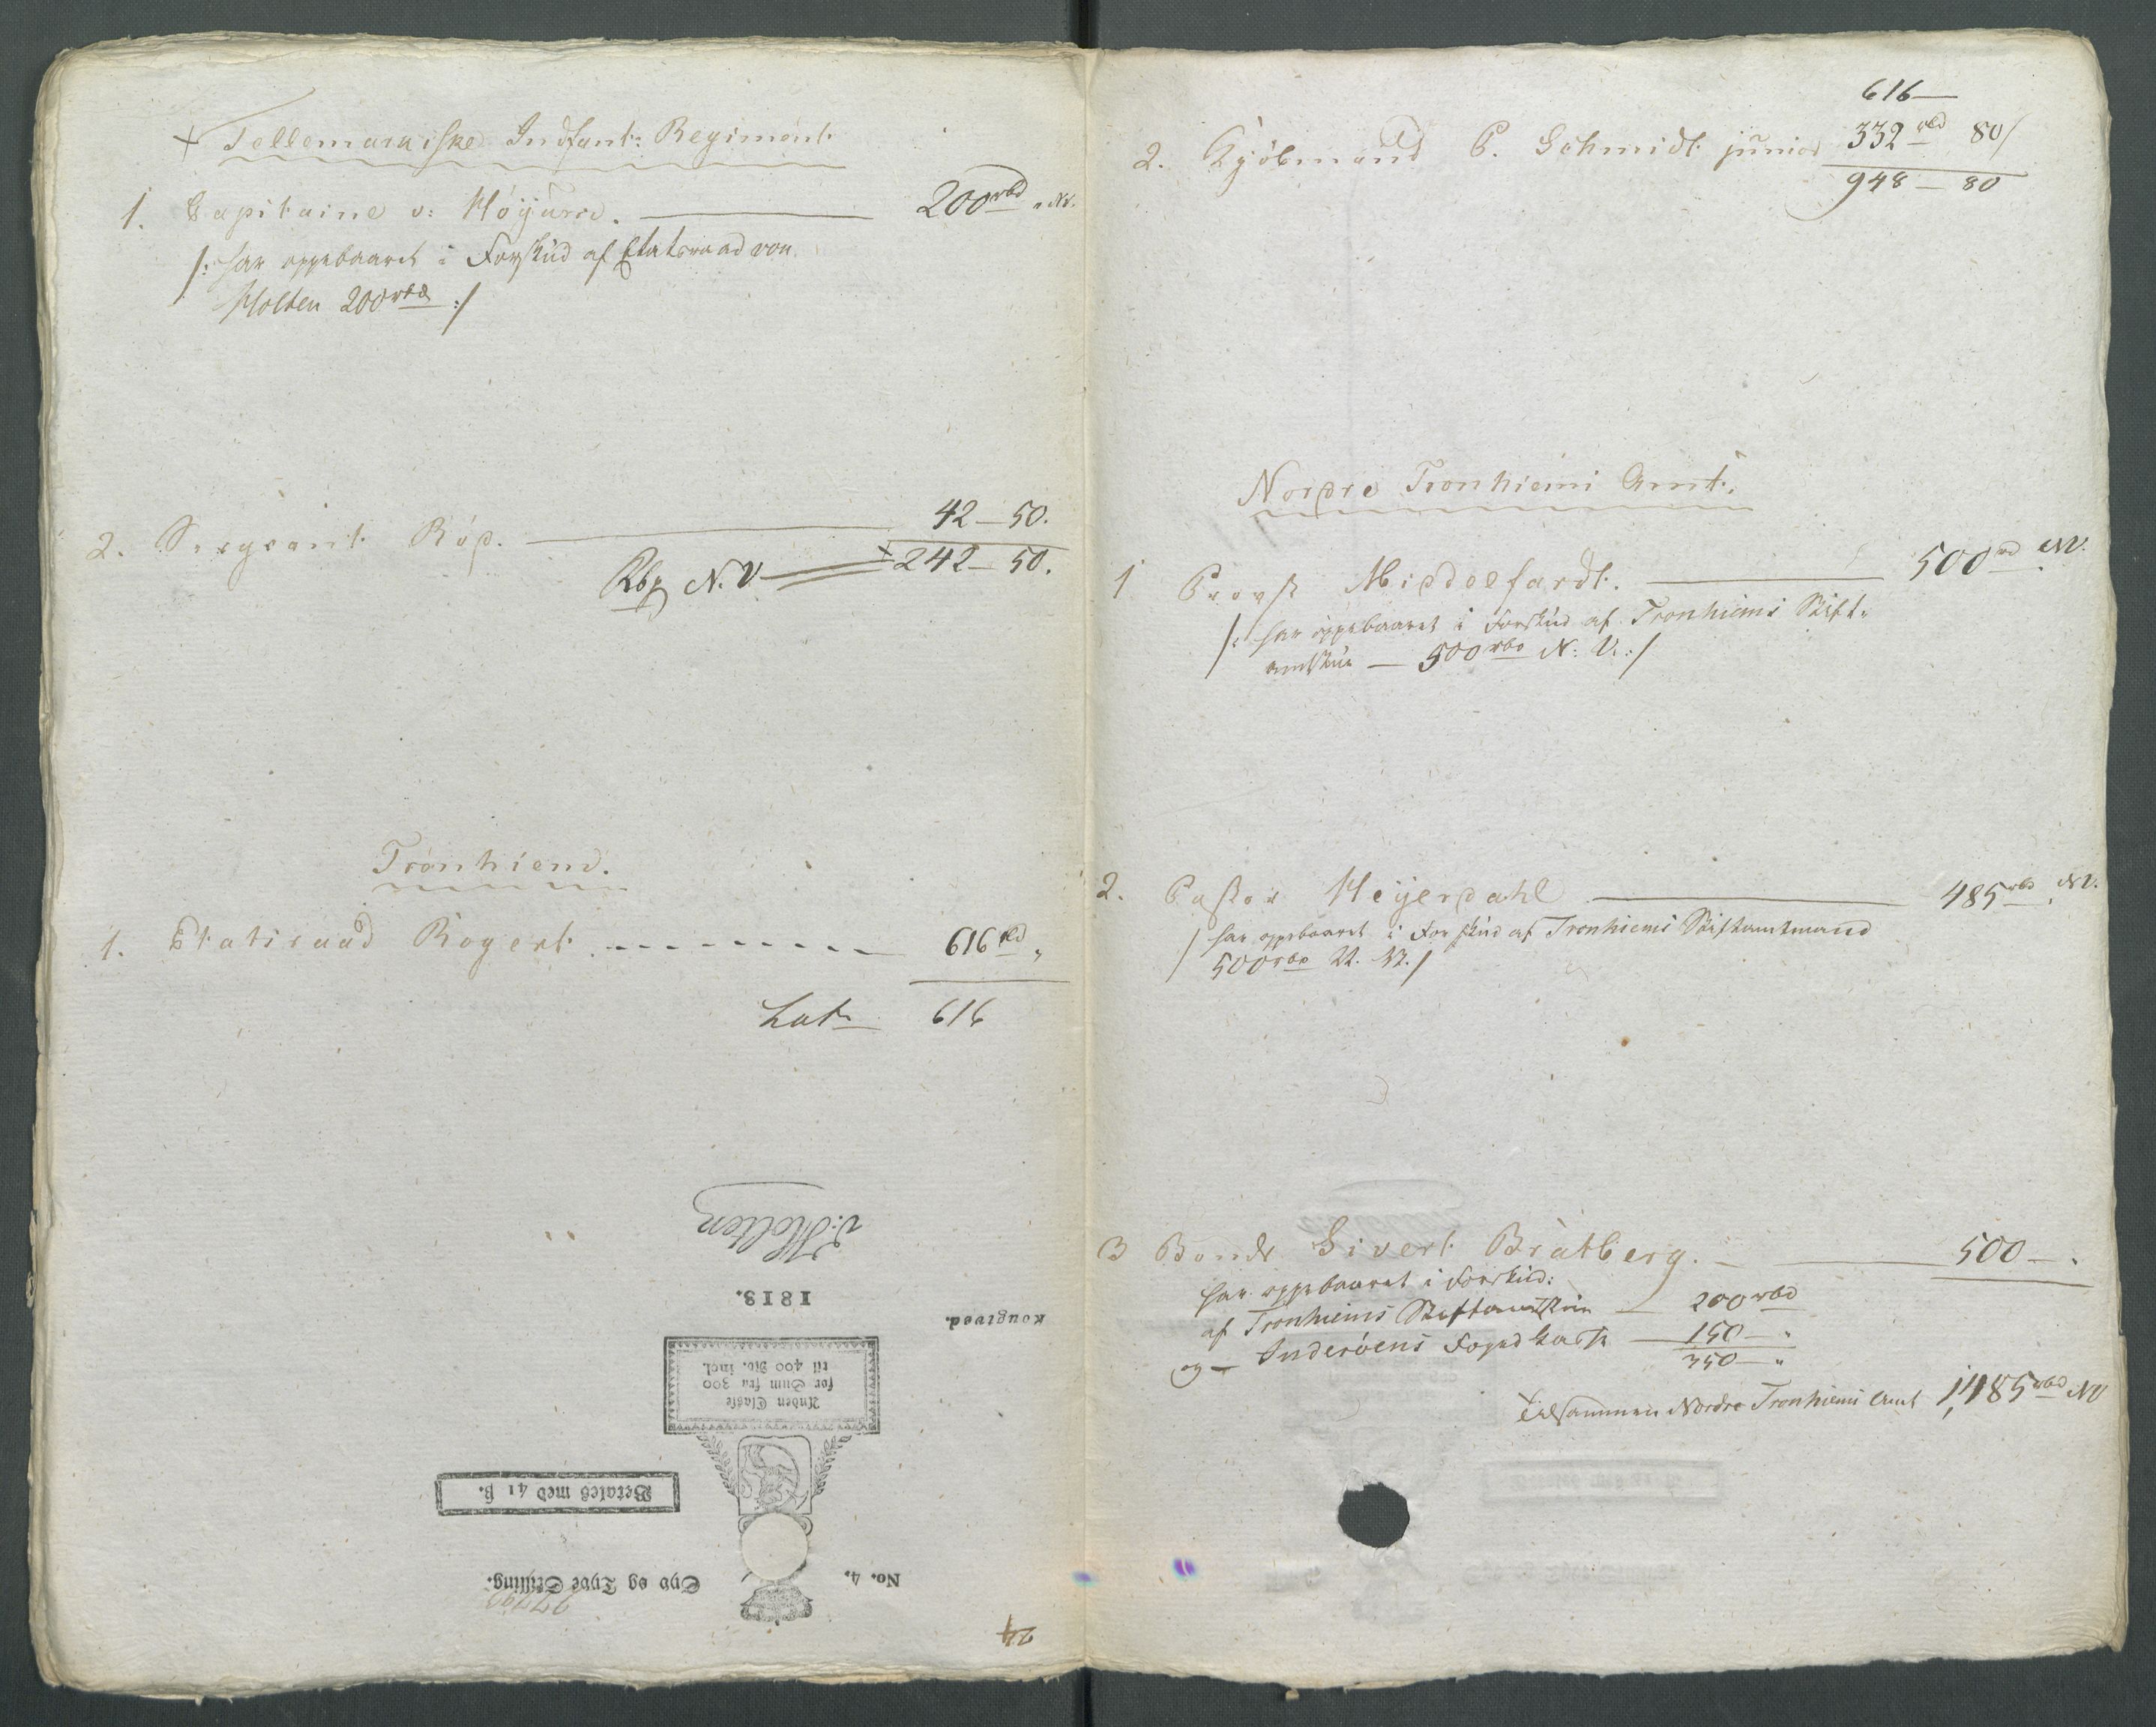 + Tellemarkiske Indfant: Regiment.
1. Capitaine v: Höyum. 200 rbd " NV.
/: har oppebaaret i Forskud af Etatsraad von
Holten 200 rbd :/
2. Sergeant Röp. 42 – 50.
Rbd N.V. + 242 – 50.
Tronhiem.
1. Etatsraad Rogert. 616 rbd "
Lat. 616
v: Holten
1813.
Kongsved.
Anden Classe
for Sum fra 300
til 400 Rd. incl.
Betales med 41 ß.
No. 4. Syv og Tyve Skilling.
24
616 –
2. Kjöbmand P. Schmidt junior 332 rbd 80/
948 – 80
Nordre Tronhiems Amt.
1 Provst Middelfardt. 500 rd NV.
/: har oppebaaret i Forskud af Tronhiems Stift-
amtstue – 500 rbd N: V. :/
2. Pastor Heyerdahl 485 rbd NV.
/ har oppebaaret i Forskud af Tronhiems Stiftamtmand
500 rbd N. V. /
3 Bonde Sivert Bratberg. 500 – "
har oppebaaret i Forskud:
af Tronhiems Stiftamtstue – 200 rbd
og – Inderöens Foged Casse – 150 – "
350 – "
+ Tilsammen Nordre Tronhiems Amt 1,485 rbd NV